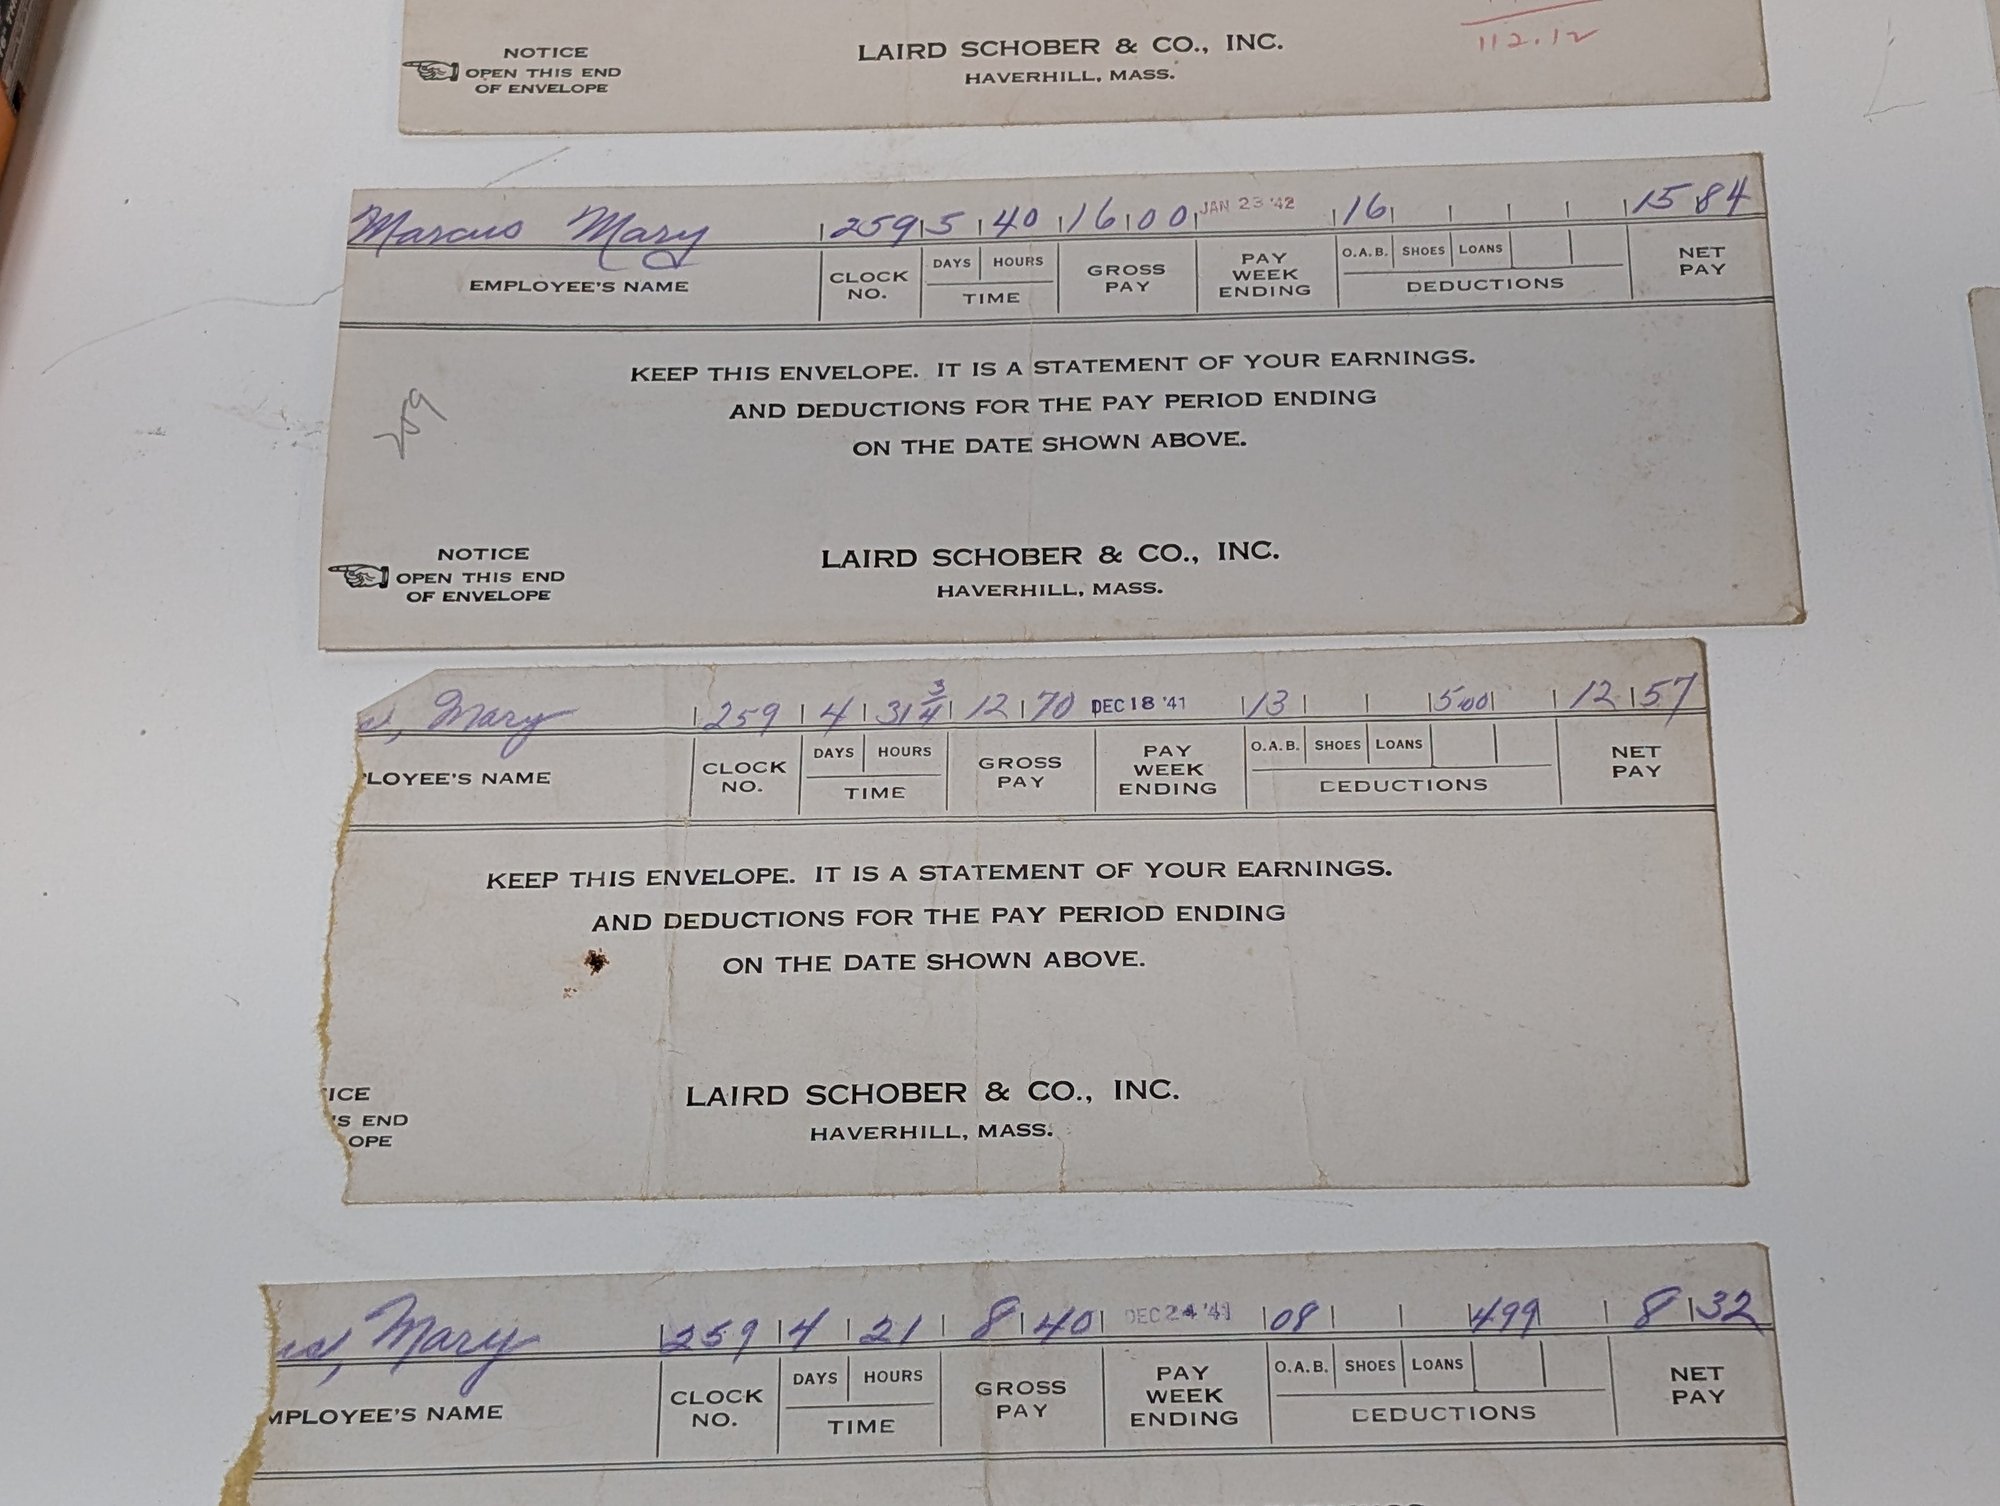 112.12
NOTICE
OPEN THIS END
OF ENVELOPE
LAIRD SCHOBER & CO., INC.
HAVERHILL, MASS.
Marcus Mary 259 5 40 16 00 JAN 23 '42 16 15 84
EMPLOYEE'S NAME
CLOCK NO.
DAYS HOURS
TIME
GROSS PAY
PAY WEEK ENDING
O.A.B. SHOES LOANS
DEDUCTIONS
NET PAY
KEEP THIS ENVELOPE. IT IS A STATEMENT OF YOUR EARNINGS.
AND DEDUCTIONS FOR THE PAY PERIOD ENDING
ON THE DATE SHOWN ABOVE.
259
NOTICE
OPEN THIS END
OF ENVELOPE
LAIRD SCHOBER & CO., INC.
HAVERHILL, MASS.
Mary 259 4 31 3/4 12 70 DEC 18 '41 13 500 12 57
LOYEE'S NAME
CLOCK NO.
DAYS HOURS
TIME
GROSS PAY
PAY WEEK ENDING
O.A.B. SHOES LOANS
DEDUCTIONS
NET PAY
KEEP THIS ENVELOPE. IT IS A STATEMENT OF YOUR EARNINGS.
AND DEDUCTIONS FOR THE PAY PERIOD ENDING
ON THE DATE SHOWN ABOVE.
ICE
S END
OPE
LAIRD SCHOBER & CO., INC.
HAVERHILL, MASS.
Mary 259 4 21 8 40 DEC 24 '41 08 499 8 32
MPLOYEE'S NAME
CLOCK NO.
DAYS HOURS
TIME
GROSS PAY
PAY WEEK ENDING
O.A.B. SHOES LOANS
DEDUCTIONS
NET PAY